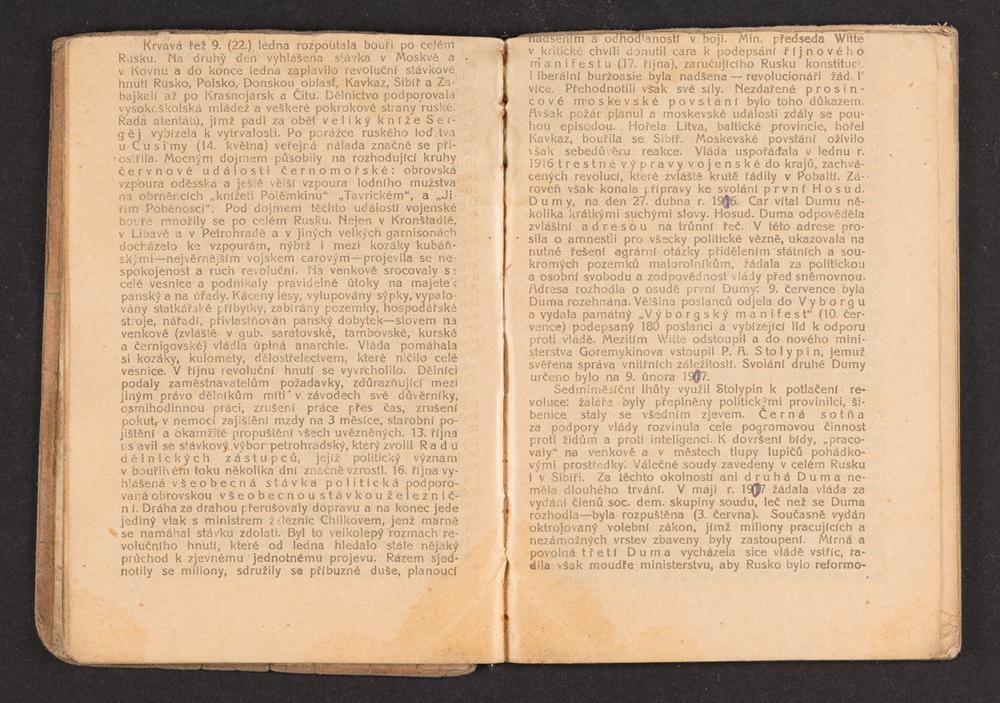 Krvavá řež 9. (22.) ledna rozpoutala bouři po celém
Rusku. Na druhý den vyhlášena stávka v Moskvě a
v Kovnu a do konce ledna zaplavilo revoluční stávkové
hnutí Rusko, Polsko, Donskou oblasť, Kavkaz, Sibiř a Za-
bajkalí až po Krasnojarsk a Čitu. Dělnictvo podporovala
vysokoškolská mládež a veškeré pokrokové strany ruské.
Řada atentátů, jimž padl za oběť veliký kníže Ser-
gěj vybízela k vytrvalosti. Po porážce ruského loďstva
u Cusimy (14. května) veřejná nálada značně se při-
ostřila. Mocným dojmem působily na rozhodující kruhy
červnové události černomořské: obrovská
vzpoura oděsská a ještě větší vzpoura lodního mužstva
na obrněncích „knížeti Potěmkinu“ „Tavrickém“, a „Ji-
řím Poběnosci“. Pod dojmem těchto událostí vojenské
bouře množily se po celém Rusku. Nejen v Kronštadtě,
v Libavě a v Petrohradě a v jiných velkých garnisonách
docházelo ke vzpourám, nýbrž i mezi kozáky kubáň-
skými—nejvěrnějším vojskem carovým—projevila se ne-
spokojenost a ruch revoluční. Na venkově srocovaly se
celé vesnice a podnikaly pravidelné útoky na majetek
panský a na úřady. Káceny lesy, vylupovány sýpky, vypalo-
vány statkářské příbytky, zabírány pozemky, hospodářské
stroje, nářadí, přivlastňován panský dobytek—slovem na
venkově (zvláště v gub. saratovské, tambovské, kurské
a černigovské) vládla úplná anarchie. Vláda pomáhala
si kozáky, kulomety, dělostřelectvem, které ničilo celé
vesnice. V říjnu revoluční hnutí se vyvrcholilo. Dělníci
podaly zaměstnavatelům požadavky, zdůrazňující mezi
jiným právo dělníkům míti v závodech své důvěrníky,
osmihodinnou práci, zrušení práce přes čas, zrušení
pokut, v nemoci zajištění mzdy na 3 měsíce, starobní po-
jištění a okamžité propuštění všech uvězněných. 13. října
ustavil se stávkový výbor petrohradský, který zvolil Radu
dělnických zástupců, jejíž politický význam
v bouřlivém toku několika dní značně vzrostl. 16. října vy-
hlášena všeobecná stávka politická podporo-
vaná obrovskou všeobecnou stávkou železnič-
ní. Dráha za drahou přerušovaly dopravu a na konec jede
jediný vlak s ministrem železnic Chilkovem, jenž marně
se namáhal stávku zdolati. Byl to velkolepý rozmach re-
volučního hnutí, které od ledna hledalo stále nějaký
průchod k zjevnému jednotnému projevu. Rázem sjed-
notily se miliony, sdružily se příbuzné duše, planoucí
nadšením a odhodlaností v boji. Min. předseda Witte
v kritické chvíli donutil cara k podepsání říjnového
manifestu (17. října), zaručujícího Rusku konstituci.
Liberální buržoasie byla nadšena — revolucionáři žád. i'
více. Přehodnotili však své síly. Nezdařené prosin-
cové moskevské povstání bylo toho důkazem.
Avšak požár planul a moskevské události zdály se pou-
hou episodou. Hořela Litva, baltické provincie, hořel
Kavkaz, bouřila se Sibiř. Moskevské povstání oživilo
však sebedůvěru reakce. Vláda uspořádala v lednu r.
1916 trestné výpravy vojenské do krajů, zachvá-
cených revolucí, které zvláště krutě řádily v Pobaltí. Zá-
roveň však konala přípravy ke svolání první Hosud.
Dumy, na den 27. dubna r. 1906. Car vítal Dumu ně-
kolika krátkými suchými slovy. Hosud. Duma odpověděla
zvláštní adresou na trůnní řeč. V této adrese pro-
sila o amnestii pro všecky politické vězně, ukazovala na
nutné řešení agrární otázky přidělením státních a sou-
kromých pozemků malorolníkům, žádala za politickou
a osobní svobodu a zodpovědnost vlády před sněmovnou.
Adresa rozhodla o osudě první Dumy: 9. července byla
Duma rozehnána. Většina poslanců odjela do Vyborgu
a vydala památný „Výborgský manifest“ (10. čer-
vence) podepsaný 180 poslanci a vybízející lid k odporu
proti vládě. Mezitím Witte odstoupil a do nového mini-
sterstva Goremykinova vstoupil P. A. Stolypin, jemuž
svěřena správa vnitřních záležitostí. Svolání druhé Dumy
určeno bylo na 9. února 1907.
Sedmiměsíční lhůty využil Stolypin k potlačení re-
voluce: žaláře byly přeplněny politickými provinilci, ši-
benice staly se všedním zjevem. Černá sotňa
za podpory vlády rozvinula cele pogromovou činnost
proti židům a proti inteligenci. K dovršení bídy, „praco-
valy“ na venkově a v městech tlupy lupičů pohádko-
vými prostředky. Válečné soudy zavedeny v celém Rusku
i v Sibiři. Za těchto okolností ani druhá Duma ne-
měla dlouhého trvání. V máji r. 1907 žádala vláda za
vydání členů soc. dem. skupiny soudu, leč než se Duma
rozhodla—byla rozpuštěna (3. června). Současně vydán
oktrojovaný volební zákon, jímž miliony pracujících a
nezámožných vrstev zbaveny byly zastoupení. Mírná a
povolná třetí Duma vycházela sice vládě vstříc, ra-
dila však moudře ministerstvu, aby Rusko bylo reformo-